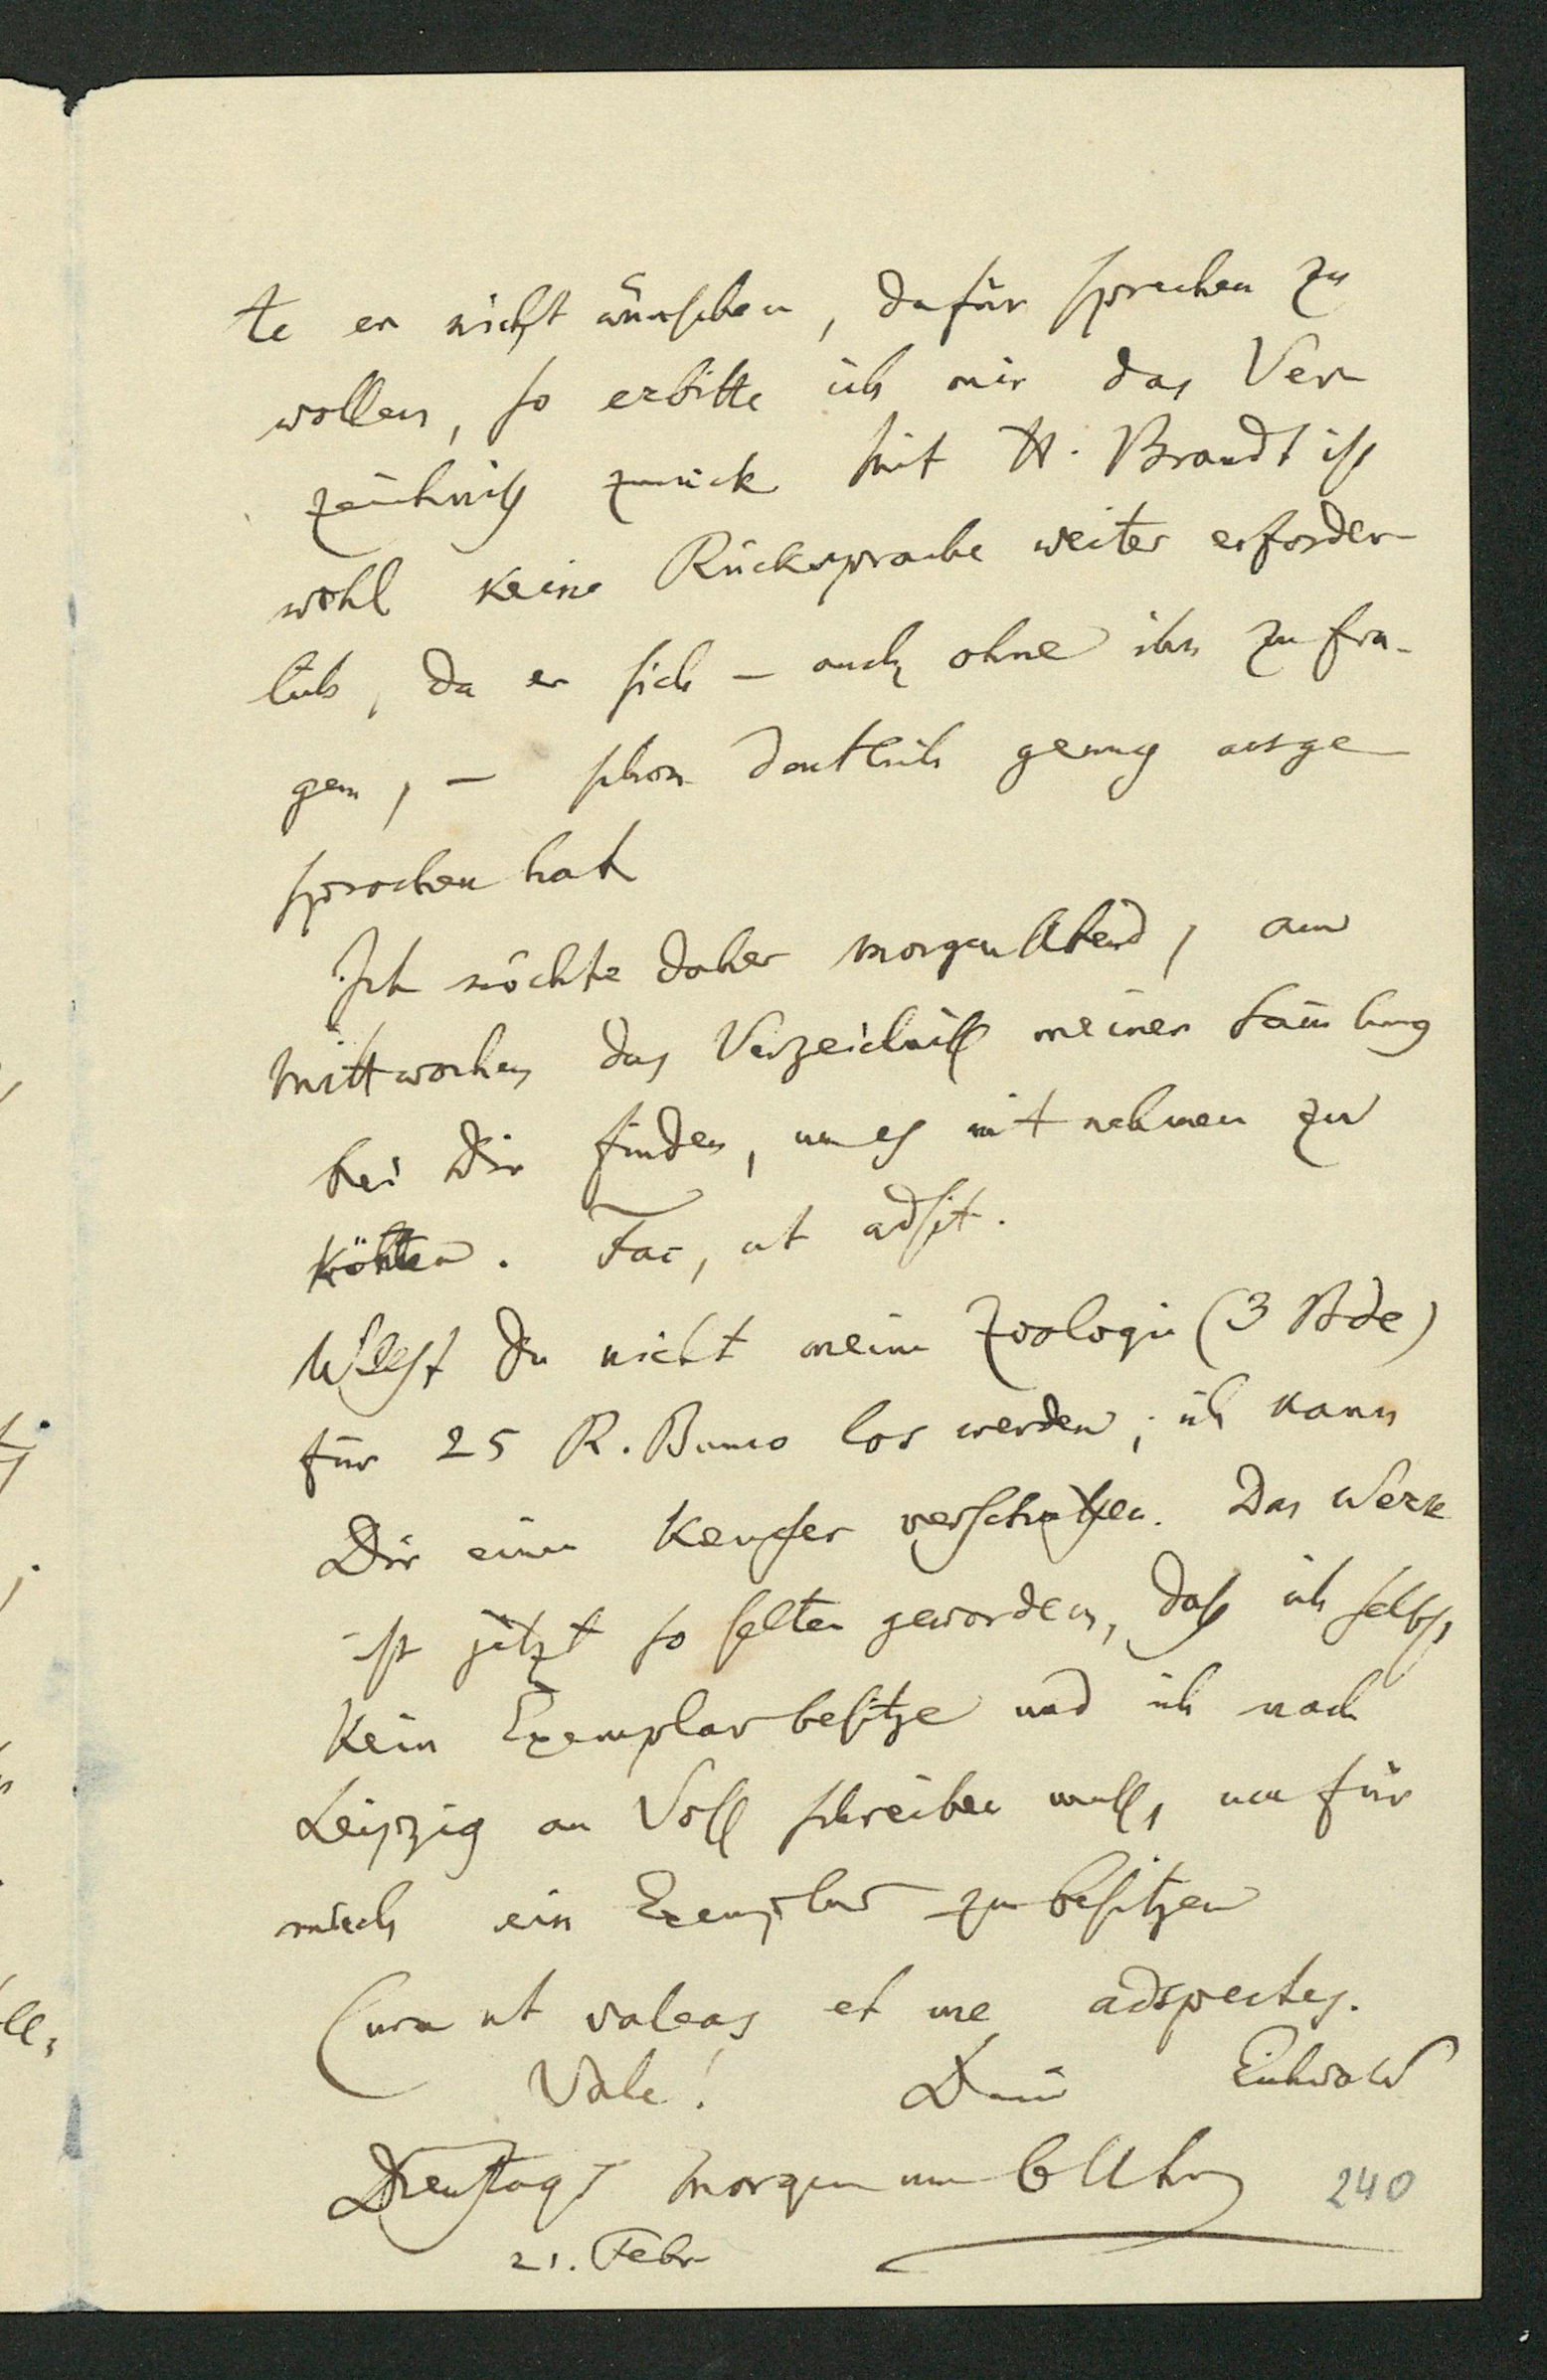 te er nicht wünschen, dafür sprechen zu
wollen, so erbitte ich mir das Ver
zeichniß zurück Mit H. Brandt ist
wohl keine Rücksprache weiter erforder-
lich, da er sich – auch ohne ihn zu fra-
gen, – schon deutlich genug ausge
sprochen hat
Ich möchte daher morgen Abend, am
Mittwochen das Verzeichniß meiner Sam̅lung
bei Dir finden, um es mit nehmen zu
kön̅en. Fac, ut adsit.
Willst Du nicht meine Zoologie (3 Bde)
für 25 R. Banco los werden; ich kann
Dir einen Kaufer verschaffen. Das Werk
ist jetzt so selten geworden, daß ich selbst
kein Exemplar besitze und ich nach
Leipzig an Voß schreiben muß, um für
mich ein Exemplar zu besitzen
Cura ut valeas et me adspectes.
Vale! Dein Eichwald
Dienstags morgen um 6 Uhr
21. Febr
240